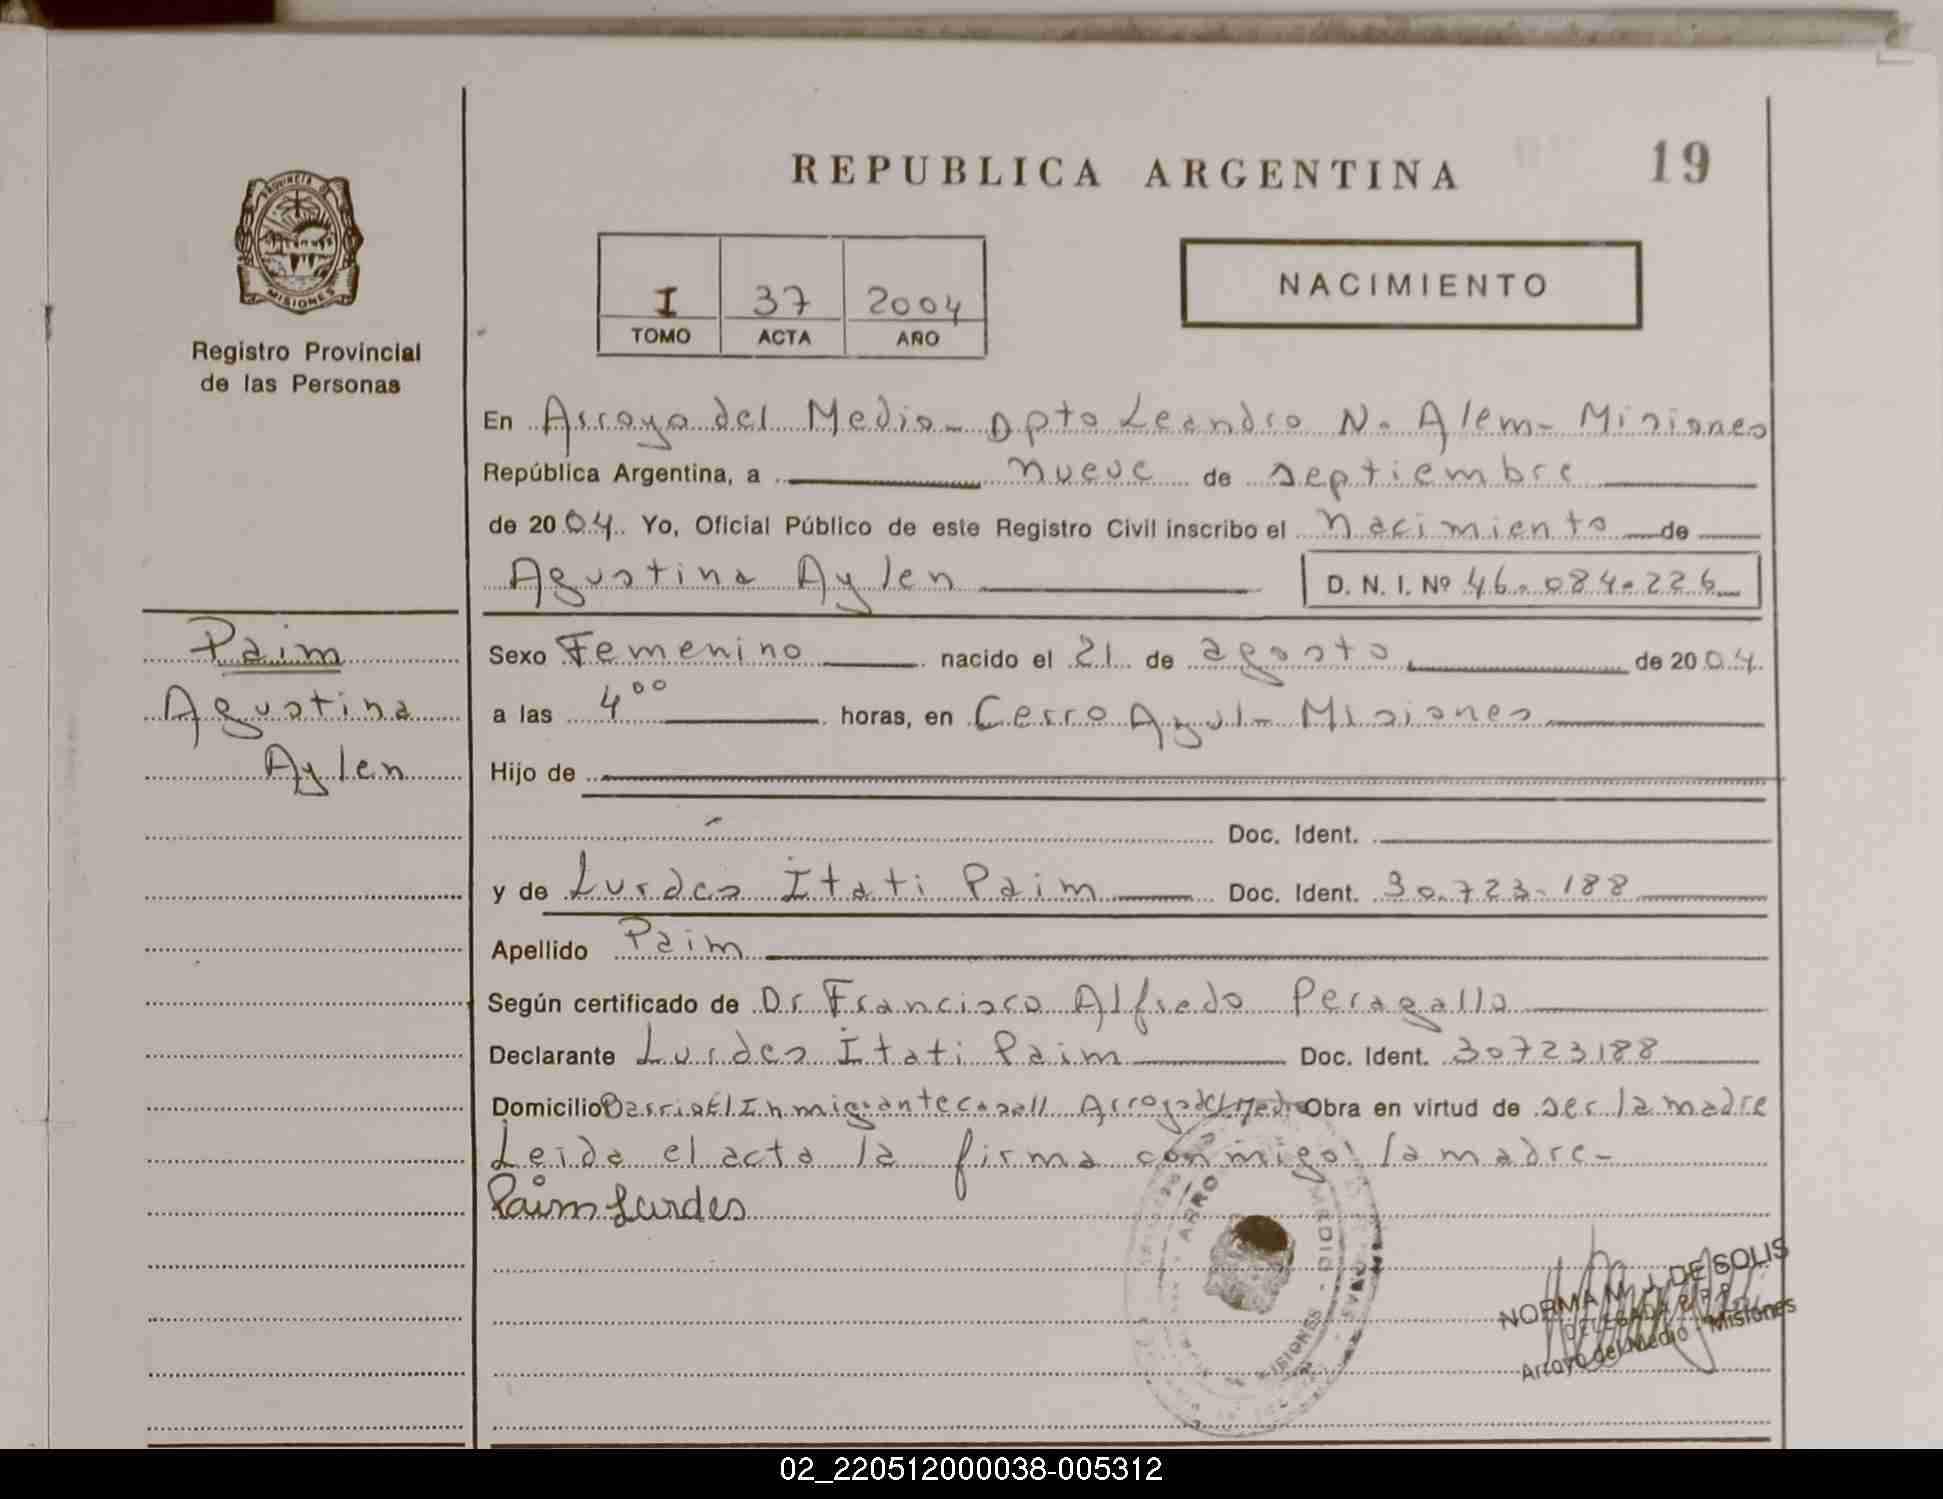 REPUBLICA ARGENTINA
19
PROVINCIA DE
MISIONES
Registro Provincial
de las Personas
I 37 2004
TOMO ACTA AÑO
NACIMIENTO
En Arroyo del Medio - Dpto Leandro N. Alem - Misiones
República Argentina, a nueve de septiembre
de 2004. Yo, Oficial Público de este Registro Civil inscribo el Nacimiento de
Agustina Aylen D. N. I. Nº 46.084.226
Paim
Agustina
Aylen
Sexo Femenino nacido el 21 de agosto de 2004.
a las 4 00 horas, en Cerro Azul - Misiones
Hijo de
Doc. Ident.
y de Lurdes Itati Paim Doc. Ident. 30.723.188
Apellido Paim
Según certificado de Dr Francisco Alfredo Peragallo
Declarante Lurdes Itati Paim Doc. Ident. 30723188
Domicilio Barrio El Inmigrante Arroyo del Medio Obra en virtud de ser la madre
Leida el acta la firma conmigo la madre -
Paim Lurdes
ARRO MEDIO - MISIONES
NORMA M. J. DE SOLIS
DELEGADA R.P.P.
Arroyo del Medio - Misiones
02_220512000038-005312